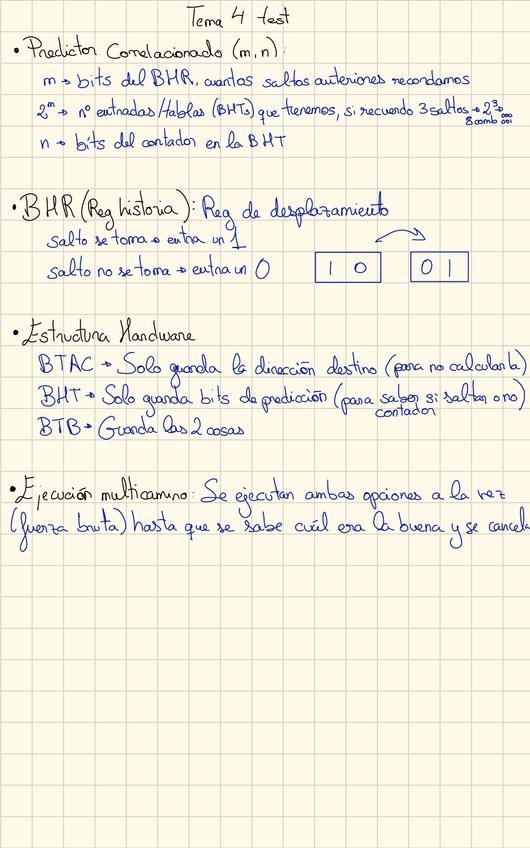 Tema 4 test
• Predictor Correlacionado (m,n):
m → bits del BHR, cuantos saltos anteriores recordamos
2^m → nº entradas/tablas (BHTs) que tenemos, si recuerdo 3 saltos → 2^3 →
8 comb 000
001
n → bits del contador en la BHT
• BHR (Reg historia): Reg de desplazamiento
salto se toma → entra un 1
salto no se toma → entra un 0
1 0
0 1
• Estructura Hardware
BTAC → Solo guarda la dirección destino (para no calcularla)
BHT → Solo guarda bits de predicción (para saber si saltar o no)
contador
BTB → Guarda las 2 cosas
• Ejecución multicamino: Se ejecutan ambas opciones a la vez
(fuerza bruta) hasta que se sabe cuál era la buena y se cancela